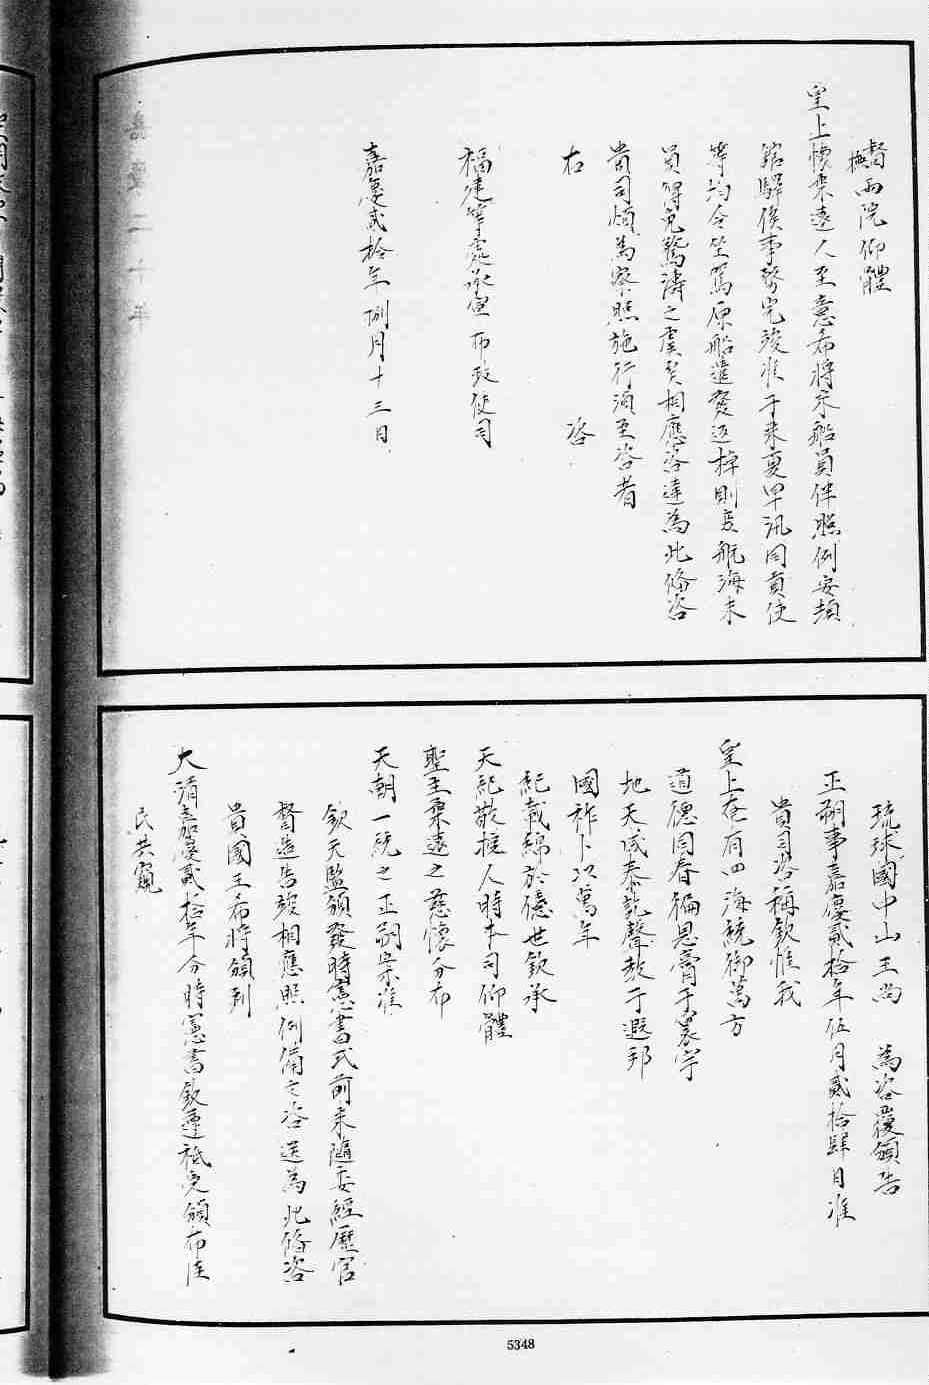 督
撫兩院仰體
皇上懷柔遠人至意希將來船員伴照例安揷
舘驛俟事務完竣准于來夏早汛同貢使
等均令坐駕原船遣發返棹則愛航海末
員得免驚濤之虞矣相應咨達為此備咨
貴司煩為察照施行須至咨者
右　　咨
福建等處承宣布政使司
嘉慶貳拾年捌月十三日
嘉慶二十年
琉球國中山王尚　為咨覆頒告
正朔事嘉慶貳拾年伍月貳拾肆日准
貴司咨稱欽惟我
皇上奄有四海統御萬方
道德同春徧恩膏于寰宇
地天咸泰訖聲教于遐邦
國祚卜以萬年
紀載綿於億世欽承
天紀敬授人時本司仰體
聖主柔遠之慈懷分布
天朝一統之正朔案准
欽天監頒發時憲書式前來隨委經歷官
督造告竣相應照例備文咨送為此備咨
貴國王希將頒到
大清嘉慶貳拾年分時憲書欽遵祇受頒布臣
民共窺
5348